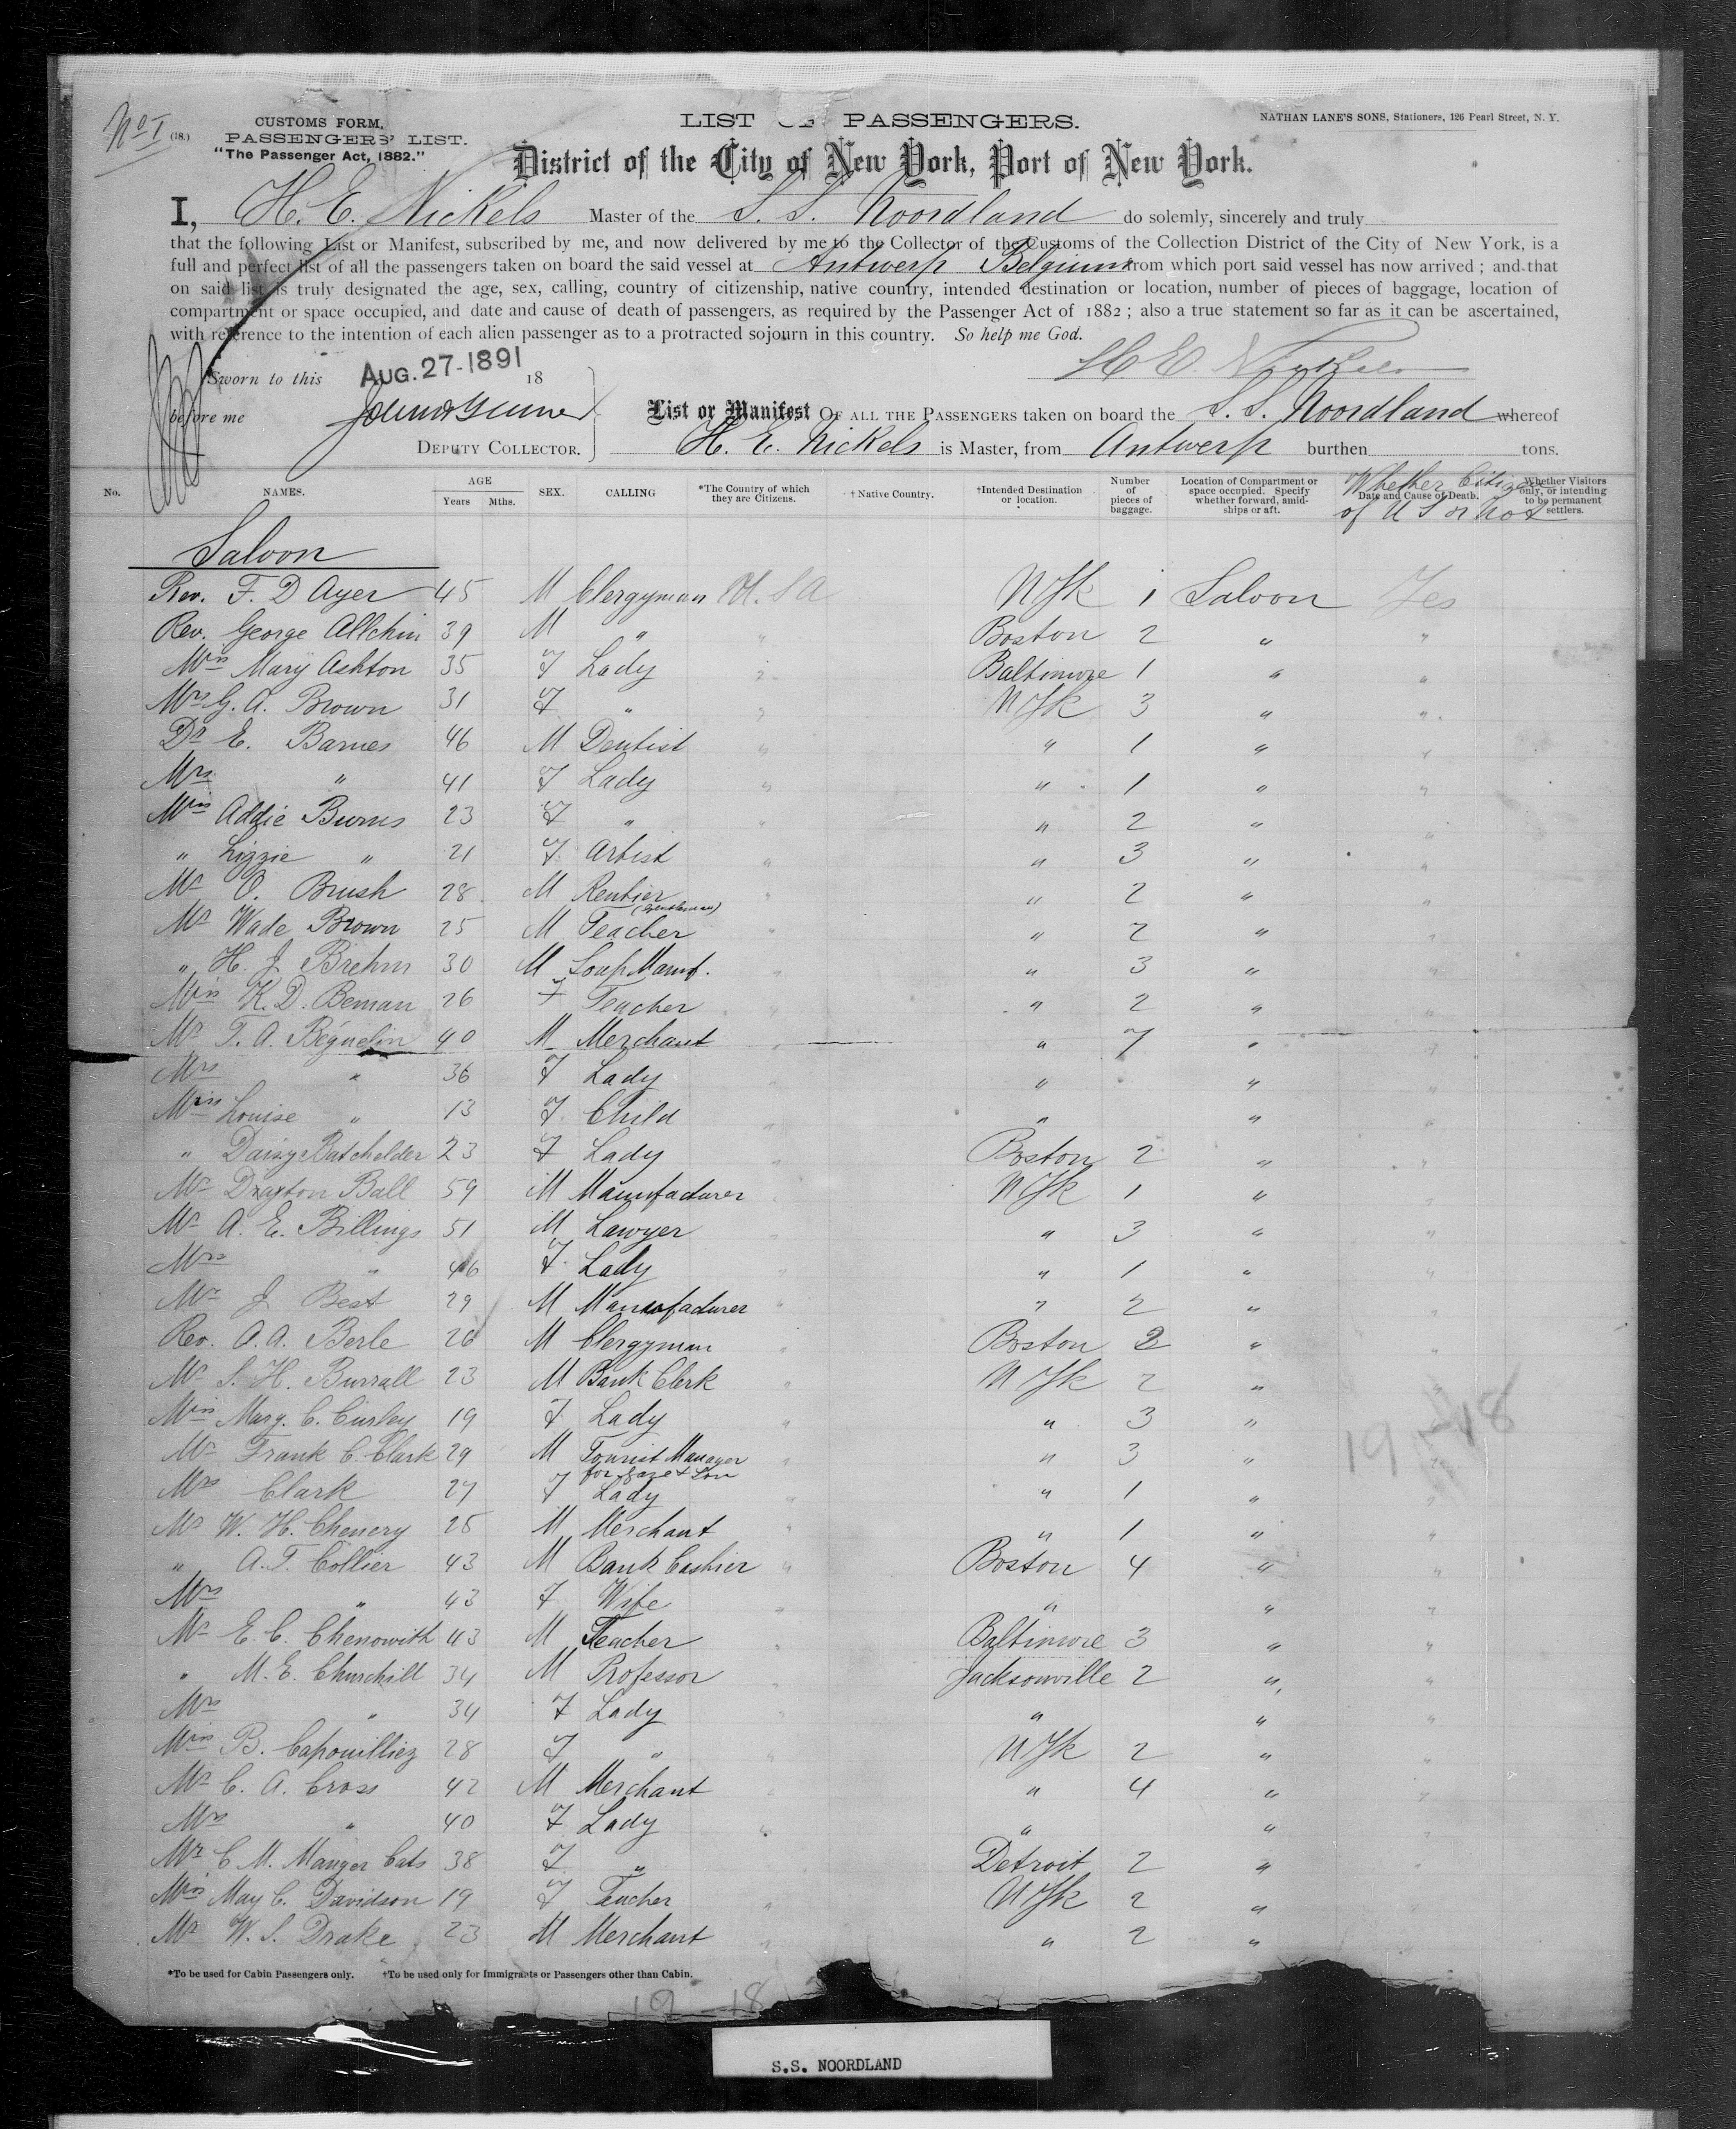 No I (18.)
CUSTOMS FORM,
PASSENGERS' LIST.
"The Passenger Act, 1882."
LIST OF PASSENGERS.
NATHAN LANE'S SONS, Stationers, 126 Pearl Street, N. Y.
District of the City of New York, Port of New York.
I, H. E. Nickels Master of the S. S. Noordland do solemly, sincerely and truly
that the following List or Manifest, subscribed by me, and now delivered by me to the Collector of the Customs of the Collection District of the City of New York, is a
full and perfect list of all the passengers taken on board the said vessel at Antwerp Belgium from which port said vessel has now arrived ; and that
on said list is truly designated the age, sex, calling, country of citizenship, native country, intended destination or location, number of pieces of baggage, location of
compartment or space occupied, and date and cause of death of passengers, as required by the Passenger Act of 1882 ; also a true statement so far as it can be ascertained,
with reference to the intention of each alien passenger as to a protracted sojourn in this country. So help me God.
H. E. Nickels
Sworn to this AUG. 27-1891 18
before me
DEPUTY COLLECTOR.
List or Manifest OF ALL THE PASSENGERS taken on board the S. S. Noordland whereof
H. E. Nickels is Master, from Antwerp burthen tons.
No. NAMES. AGE Years Mths. SEX. CALLING *The Country of which they are Citizens. † Native Country. †Intended Destination or location. Number of pieces of baggage. Location of Compartment or space occupied. Specify whether forward, amidships or aft. Date and Cause of Death. Whether Visitors only, or intending to be permanent settlers.
Whether Citizen of U S or not
Saloon
Rev. F. D Ayer 45 M Clergyman U. S A N Yk 1 Saloon Yes
Rev. George Allchin 39 M " " Boston 2 " "
Miss Mary Ashton 35 F Lady " Baltimore 1 " "
Mrs G. A. Brown 31 F " " N Yk 3 " "
Dr E. Barnes 46 M Dentist " " 1 " "
Mrs " 41 F Lady " " 1 " "
Miss Addie Burns 23 F " " " 2 " "
" Lizzie " 21 F Artist " " 3 " "
Mr O. Brush 28 M Rentier (Gentleman) " " 2 " "
Mr Wade Brown 25 M Teacher " " 2 " "
" H. J. Brehm 30 M Soap Manuf. " " 3 " "
Miss K. D. Beman 26 F Teacher " " 2 " "
Mr T. A. Béguelin 40 M Merchant " " 7 " "
Mrs " 36 F Lady " " " "
Miss Louise " 13 F Child " " " "
" Daisy Batchelder 23 F Lady " Boston 2 " "
Mr Drayton Ball 59 M Manufacturer " N Yk 1 " "
Mr A. E. Billings 51 M Lawyer " " 3 " "
Mrs " 46 F Lady " " 1 " "
Mr J. Best 29 M Manufacturer " " 2 " "
Rev. A. A. Berle 26 M Clergyman " Boston 2 " "
Mr S. H. Burrall 23 M Bank Clerk " N Yk 2 " "
Miss Marg. C. Curley 19 F Lady " " 3 " "
Mr Frank C. Clark 29 M Tourist Manager for Gaze & Son " " 3 " "
Mrs Clark 27 F Lady " " 1 " "
Mr W. H. Chenery 25 M Merchant " " 1 " "
" A. T. Collier 43 M Bank Cashier " Boston 4 " "
Mrs " 43 F Wife " " " "
Mr E. C. Chenowith 43 M Teacher " Baltimore 3 " "
" M. E. Churchill 34 M Professor " Jacksonville 2 " "
Mrs " 34 F Lady " " " "
Miss B. Capouilliez 28 F " " N Yk 2 " "
Mr C. A. Cross 42 M Merchant " " 4 " "
Mrs " 40 F Lady " " " "
Mr C M. Manger Cats 38 F " Detroit 2 " "
Miss May C. Davidson 19 F Teacher " N Yk 2 " "
Mr W. S. Drake 23 M Merchant " " 2 "
*To be used for Cabin Passengers only. †To be used only for Immigrants or Passengers other than Cabin.
19 - 18
S.S. NOORDLAND